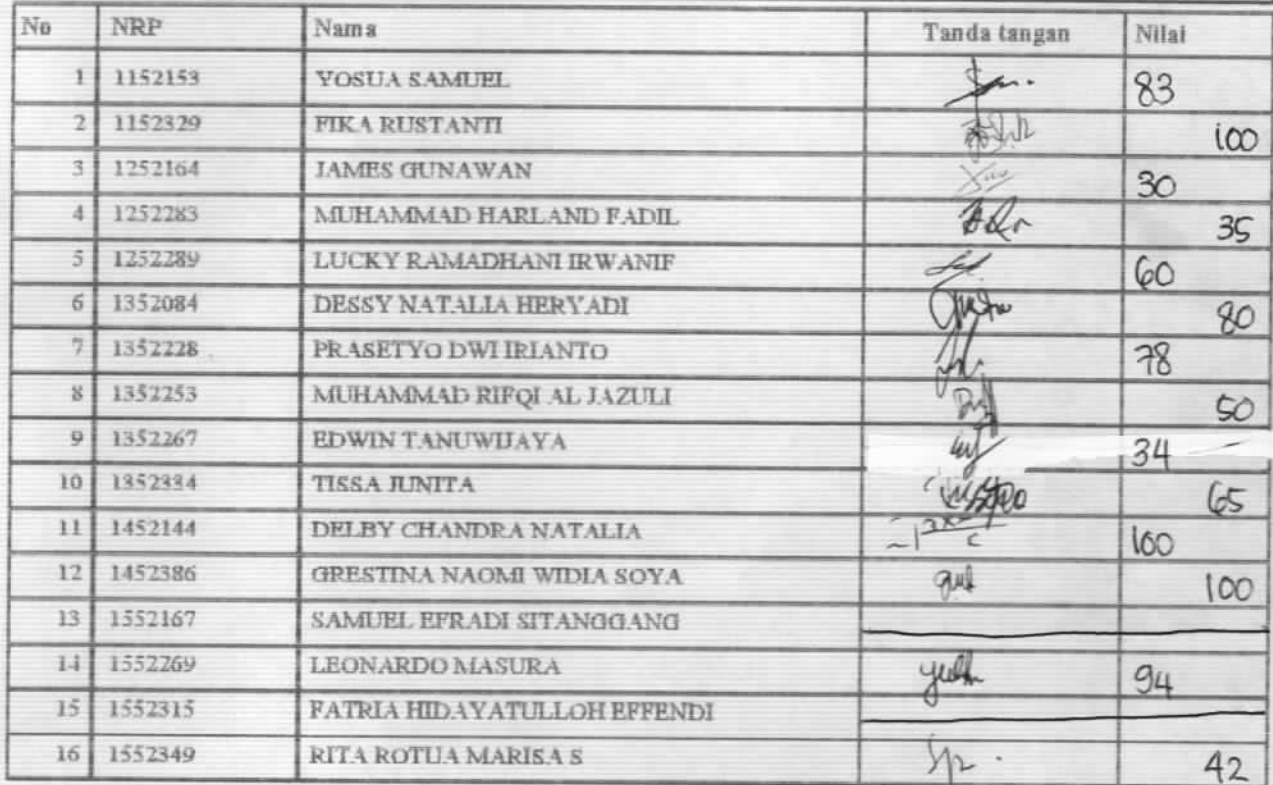 No NRP Nama Tanda tangan Nilai
1 1152153 YOSUA SAMUEL 83
2 1152329 FIKA RUSTANTI 100
3 1252164 JAMES GUNAWAN 30
4 1252283 MUHAMMAD HARLAND FADIL 35
5 1252289 LUCKY RAMADHANI IRWANIF 60
6 1352084 DESSY NATALIA HERYADI 80
7 1352228 PRASETYO DWI IRIANTO 78
8 1352253 MUHAMMAD RIFQI AL JAZULI 50
9 1352267 EDWIN TANUWIJAYA 34
10 1352334 TISSA JUNITA 65
11 1452144 DELBY CHANDRA NATALIA 100
12 1452386 GRESTINA NAOMI WIDIA SOYA 100
13 1552167 SAMUEL EFRADI SITANGGANG
14 1552269 LEONARDO MASURA 94
15 1552315 FATRIA HIDAYATULLOH EFFENDI
16 1552349 RITA ROTUA MARISA S 42